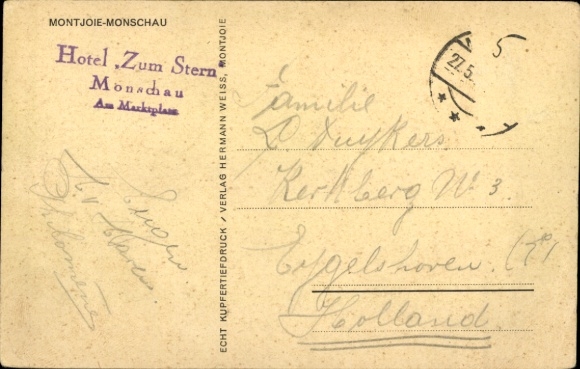 MONTJOIE-MONSCHAU
Hotel „Zum Stern
Monschau
Am Marktplatz
ECHT KUPFERTIEFDRUCK / VERLAG HERMANN WEISS, MONTJOIE
27.5
5
Familie
L Duykers
Kerkberg No 3.
Eygelshoven.
Holland